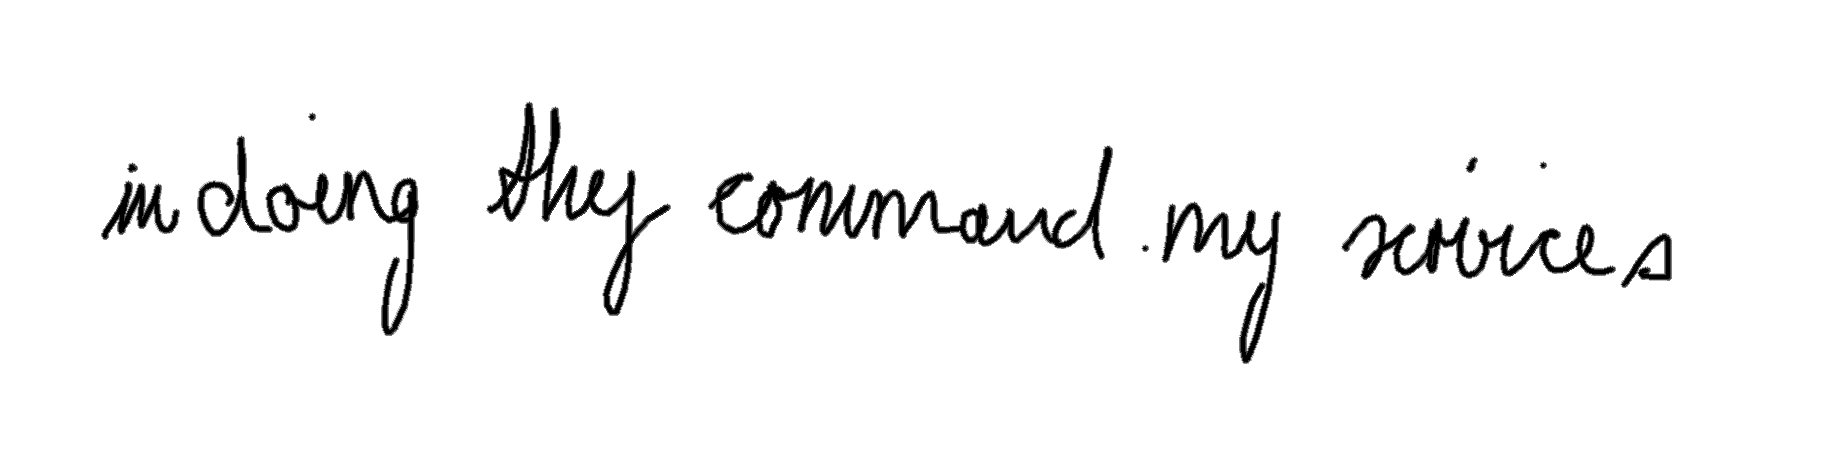 in doing they command . my services